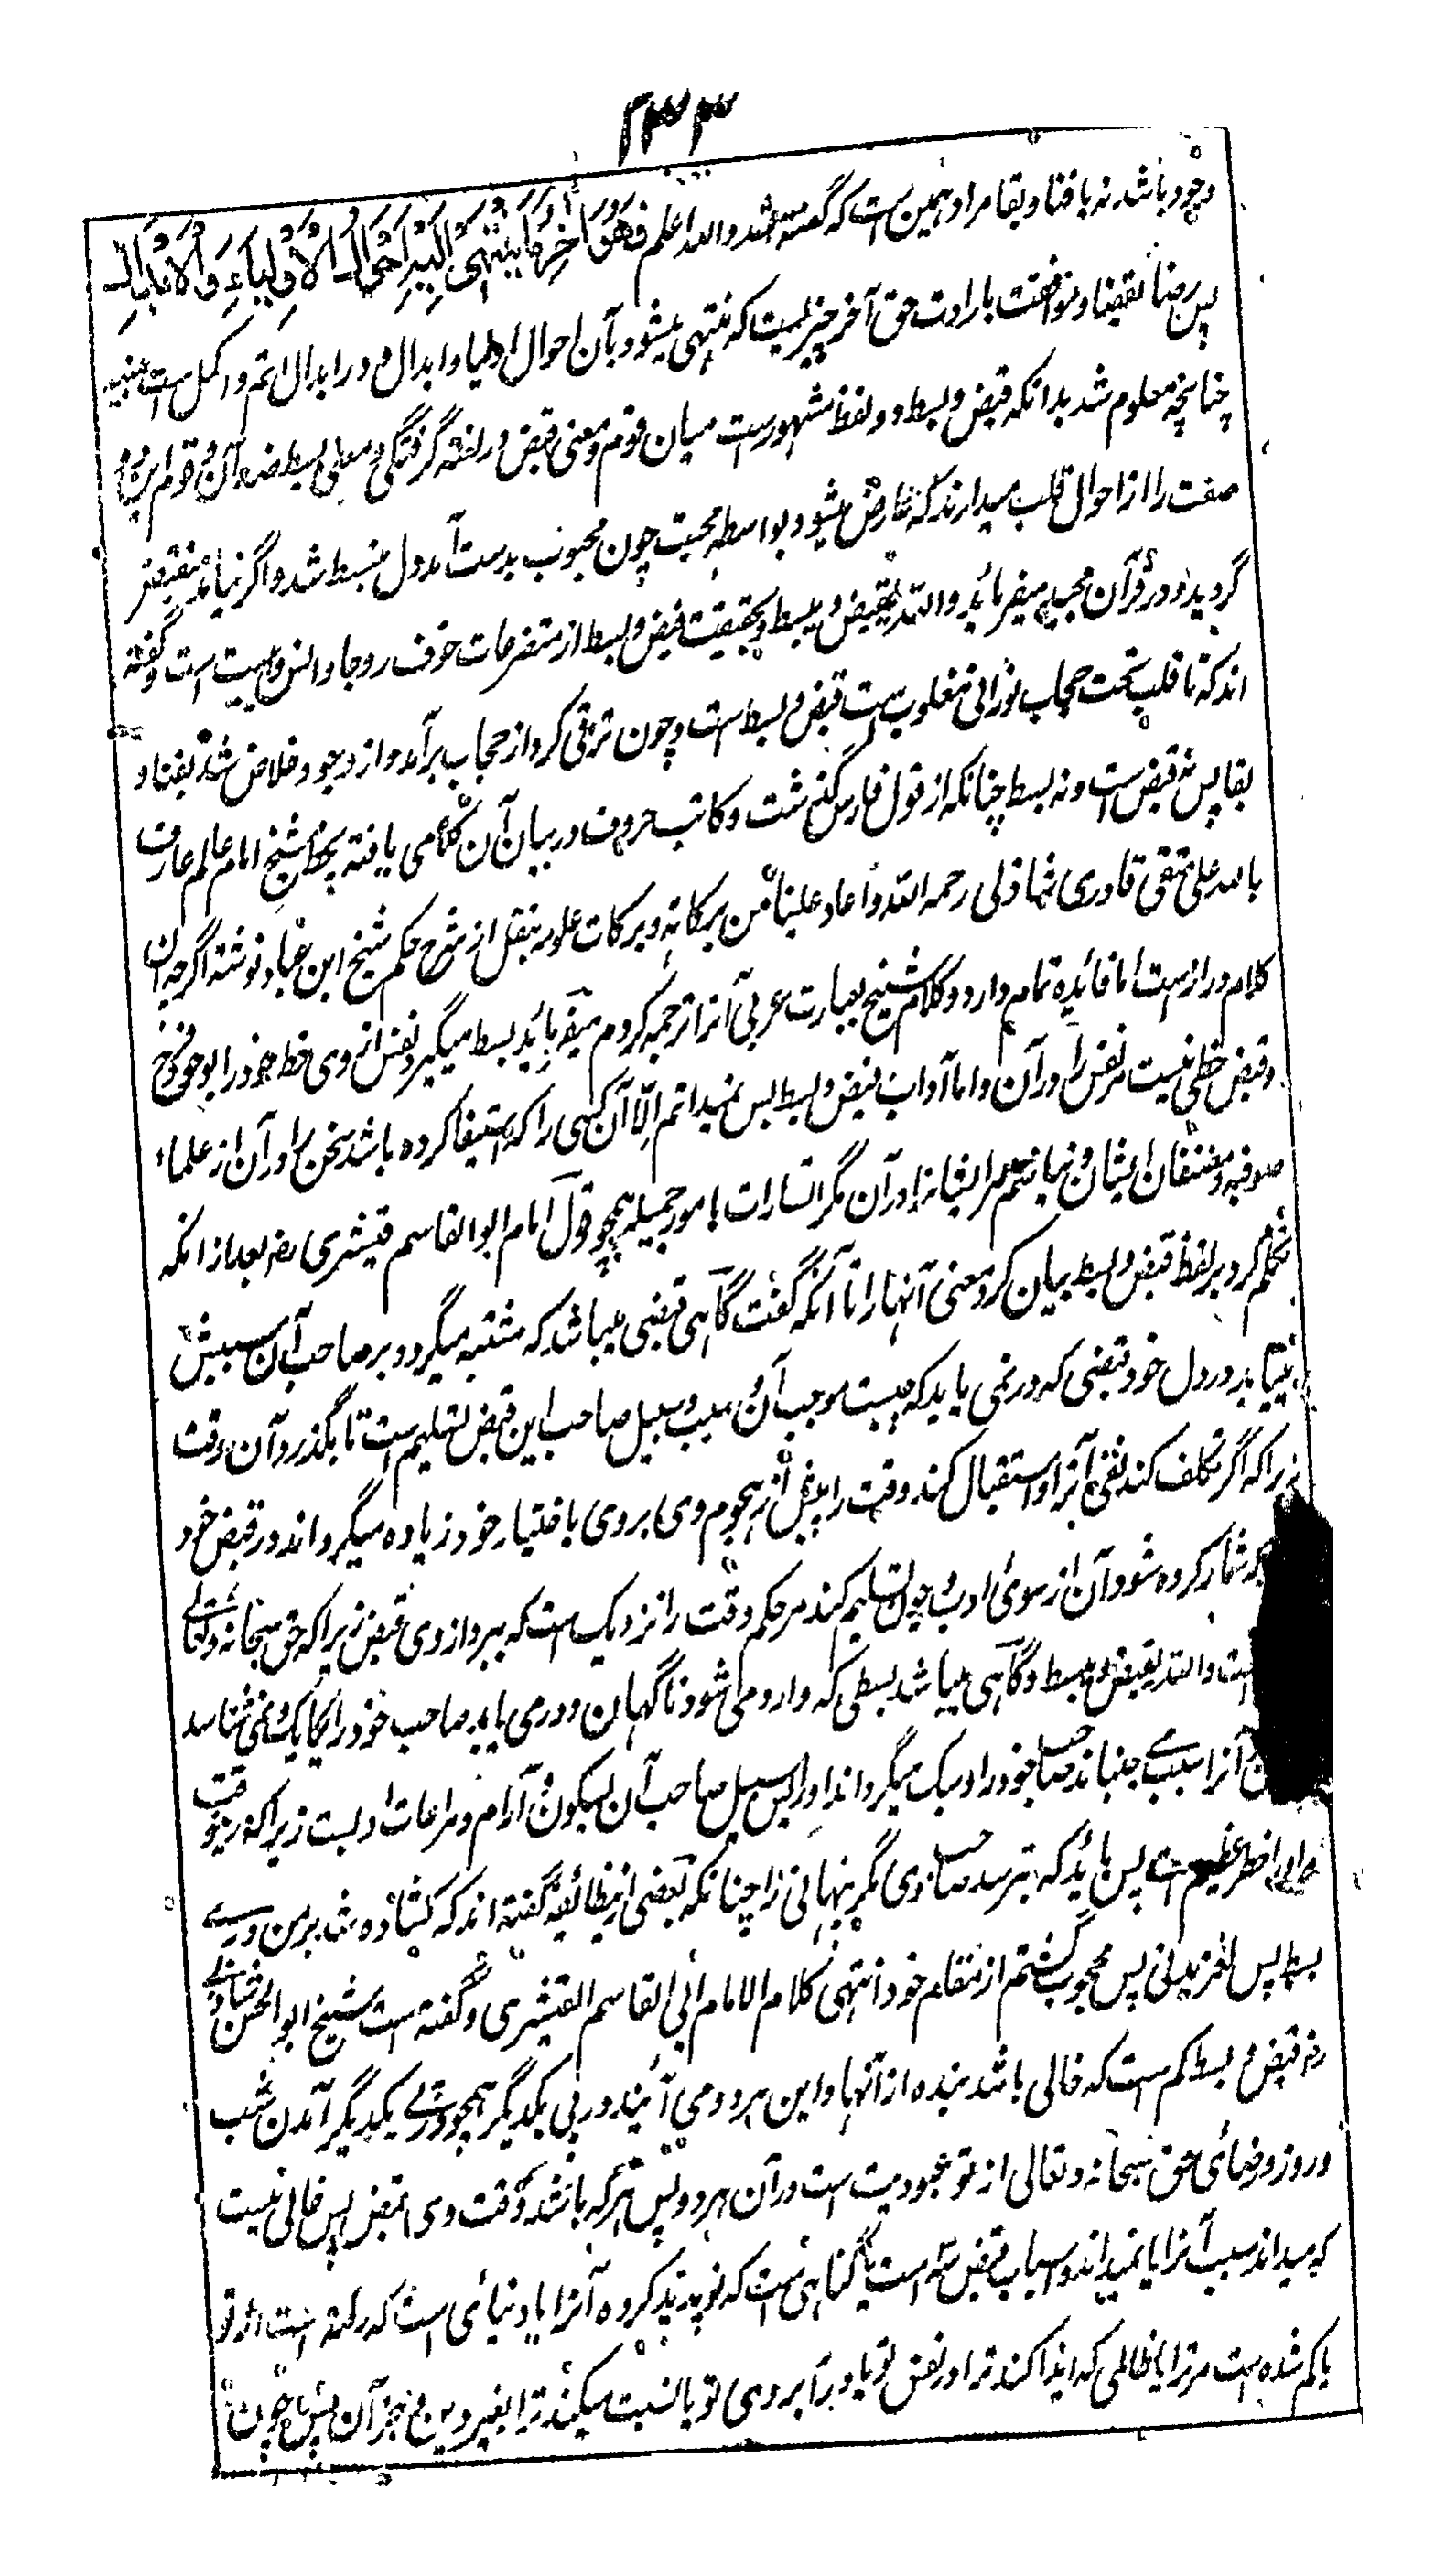 ۲۳۳
وجود باشد نه با فنا و بقا مراد همین است که گفته شد والله اعلم فَهُوَ آخِرُ مَا يَنْتَهِي إِلَيْهِ أَحْوَالُ الْأَوْلِيَاءِ وَالْأَبْدَالِ
پس رضا بقضا و موافقت بارادت حق آخر چیزیست که منتهی میشود بآن احوال اولیا و ابدال و در ابدال اتم و اکمل است تنبیه
چنانچه معلوم شد بدانکه قبض و بسط دو لفظ مشهور ست میان قوم و معنی قبض در لغة گرفتگی و معنی بسط ضد آن و قوم این دو
صفت را از احوال قلب میدارند که عارض میشود بواسطه محبت چون محبوب بدست آمد دل منبسط شد و اگر نیامد منقبض
گردید و در قرآن مجید میفرماید والله یقبض و یبسط و بحقیقت قبض و بسط از متفرعات خوف و رجا و انس و هیبت است و گفته
اند که تا قلب تحت حجاب نورانی مغلوب ست قبض و بسط ست و چون ترقی کرد از حجاب برآمد و از وجود خلاص شد بفنا و
بقا پس نه قبض ست و نه بسط چنانکه از قول فارس گذشت و کاتب حروف در بیان آن کلامی یافته بخط شیخ امام عالم عارف
بالله علی متقی قادری شاذلی رحمه الله و اعاد علینا من برکاته و برکات علومه بنقل از شرح حکم شیخ ابن عباد نوشته اگرچه آن
کلام دراز ست اما فائده تمام دارد و کلام شیخ بعبارت عربی آنرا ترجمه کردم میفرماید بسط میگیرد نفس از وی حظ خود را بوجود فرح
و قبض حظی نیست نفس را در آن و اما آداب قبض و بسط پس نمیدانم الّا آن کسی را که استیفا کرده باشد سخن را در آن از علماء
صوفیه و مصنفان ایشان و نیافتم مر ایشانرا در آن مگر اشارات بامور جمیله همچو قول امام ابو القاسم قشیری رضه بعد از انکه
تکلم کرد بر لفظ قبض و بسط بیان کرد معنی آنها را تا آنکه گفت گاهی قبضی میباشد که مشتبه میگردد بر صاحب آن سببش
میابد در دل خود قبضی که در نمی یابد که چیست موجب آن و سبب و سبیل صاحب این قبض تسلیم ست تا بگذرد آن وقت
زیرا که اگر تکلف کند نفی آنرا و استقبال کند وقت را پیش از هجوم وی بر وی باختیار خود زیاده میگرداند در قبض خود
شمار کرده شود آن از سوی ادب و چون تسلیم کند مر حکم وقت را نزدیک ست که ببرد از وی قبض زیرا که حق سبحانه و تعالی
است والله یقبض و یبسط و گاهی میباشد بسطی که وارد می شود ناگهان و در می یابد صاحب خود را یکایک و نمی شناسد
آنرا سببے جنباند صاحب خود را و سبک میگرداند او را پس سبیل صاحب آن سکون و آرام و مراعات ادبست زیرا که درینوقت
مر او را خطر عظیم ست پس باید که بترسد صاحب وی مکر پنهانی را چنانکه بعضی ازینطائفه گفته اند که کشاده شد بر من درے
بسط پس لغزیدنی پس محجوب گشتم از مقام خود انتهی کلام الامام ابی القاسم القشیری و گفته است شیخ ابو الحسن شاذلی
رضه قبض و بسط کم ست که خالی باشد بنده از آنها و این هر دو می آیند در پی یکدیگر همچو در پے یکدیگر آمدن شب
و روز و رضای حق سبحانه و تعالی از تو عبودیت است در آن هر دو پس هر که باشد وقت وی قبض پس خالی نیست
که میداند سبب آنرا یا نمیداند و اسباب قبض سه است یا گناهی ست که نو پدید کرده آنرا یا دنیائی است که رفته است از تو
یا کم شده است مر ترا یا ظالمی که ایذا کند ترا در نفس تو یا در آبروی تو یا نسبت میکند ترا بغیر دین و جز آن پس چون